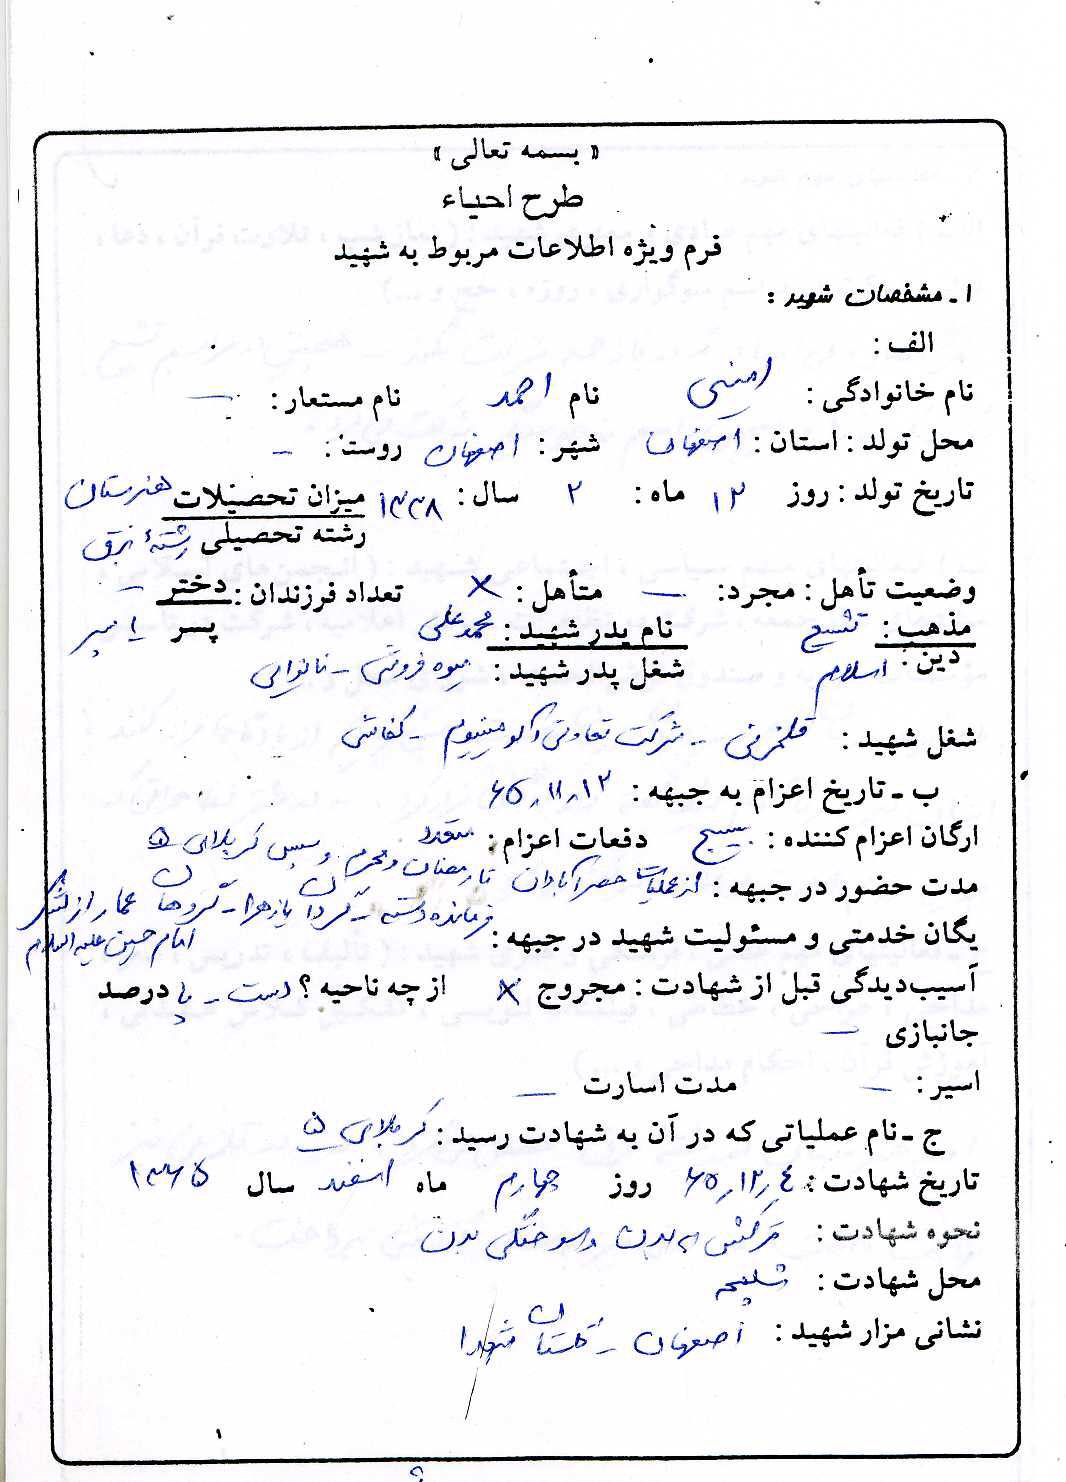 « بسمه تعالی »
طرح احیاء
فرم ویژه اطلاعات مربوط به شهید
۱ ـ مشخصات شهید :
الف :
نام خانوادگی : امینی نام احمد نام مستعار : ـ
محل تولد : استان : اصفهان شهر : اصفهان روستا : ـ
تاریخ تولد : روز ۱۲ ماه : ۲ سال : ۱۳۳۸ میزان تحصیلات هنرستان
رشته تحصیلی رشتهٔ برق
وضعیت تأهل : مجرد : ـ متأهل : × تعداد فرزندان : دختر ـ
مذهب : تشیع نام پدر شهید : محمدعلی پسر ۱ پسر
دین : اسلام شغل پدر شهید : میوه فروشی ـ نانوایی
شغل شهید : قلمزنی ـ شرکت تعاونی آلومینیوم ـ کفاشی
ب ـ تاریخ اعزام به جبهه : ۶۵٫۱۱٫۱۲
ارگان اعزام کننده : بسیج دفعات اعزام : متعدد
مدت حضور در جبهه : از عملیات حصر آبادان تا رمضان و محرم و سپس کربلای ۵
یگان خدمتی و مسئولیت شهید در جبهه : فرمانده دسته ـ گردان یازهرا ـ گروهان عمار از لشکر امام حسین علیه السلام
آسیب‌دیدگی قبل از شهادت : مجروح × از چه ناحیه ؟ دست ـ پا درصد
جانبازی ـ
اسیر : ـ مدت اسارت ـ
ج ـ نام عملیاتی که در آن به شهادت رسید : کربلای ۵
تاریخ شهادت : ۶۵٫۱۲٫۴ روز چهارم ماه اسفند سال ۱۳۶۵
نحوه شهادت : ترکش به بدن و سوختگی بدن
محل شهادت : شلمچه
نشانی مزار شهید : اصفهان ـ گلستان شهدا